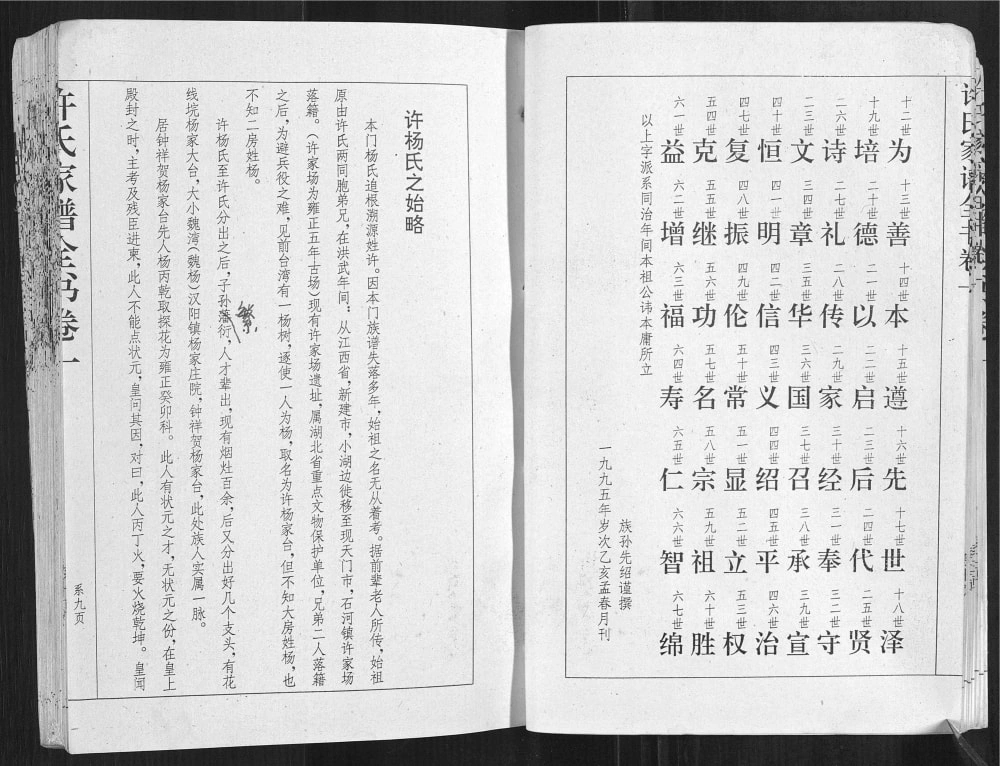 十二世 为 十三世 善 十四世 本 十五世 遵 十六世 先 十七世 世 十八世 泽
十九世 培 二十世 德 二一世 以 二二世 启 二三世 后 二四世 代 二五世 贤
二六世 诗 二七世 礼 二八世 传 二九世 家 三十世 经 三一世 奉 三二世 守
三三世 文 三四世 章 三五世 华 三六世 国 三七世 召 三八世 承 三九世 宣
四十世 恒 四一世 明 四二世 信 四三世 义 四四世 绍 四五世 平 四六世 治
四七世 复 四八世 振 四九世 伦 五十世 常 五一世 显 五二世 立 五三世 权
五四世 克 五五世 继 五六世 功 五七世 名 五八世 宗 五九世 祖 六十世 胜
六一世 益 六二世 增 六三世 福 六四世 寿 六五世 仁 六六世 智 六七世 绵
以上字派系同治年间本祖公讳本庸所立
族孙先绍谨撰
一九九五年岁次乙亥孟春月刊
许杨氏之始略
本门杨氏追根溯源姓许。因本门族谱失落多年，始祖之名无从着考。据前辈老人所传，始祖
原由许氏两同胞弟兄，在洪武年间：从江西省，新建市，小湖边徙移至现天门市，石河镇许家场
落籍。（许家场为雍正五年古场）现有许家场遗址，属湖北省重点文物保护单位，兄弟二人落籍
之后，为避兵役之难，见前台湾有一杨树，逐使一人为杨，取名为许杨家台，但不知大房姓杨，也
不知二房姓杨。
许杨氏至许氏分出之后，子孙藩衍，人才辈出，现有烟灶百余，后又分出好几个支头，有花
繁
线垸杨家大台，大小魏湾（魏杨）汉阳镇杨家庄院，钟祥贺杨家台，此处族人实属一脉。
居钟祥贺杨家台先人杨丙乾取探花为雍正癸卯科。此人有状元之才，无状元之份，在皇上
殿封之时，主考及残臣进柬，此人不能点状元，皇问其因，对曰，此人丙丁火，要火烧乾坤。皇闻
系九页
许氏家谱全书卷一